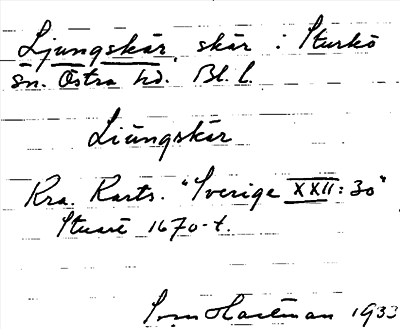 Ljungskär, skär i Sturkö
sn. Östra hd. Bl. l.
Liungskär
Kra. Karts. "Sverige XXII: 30"
Stuart 1670-t.
Hartman 1933